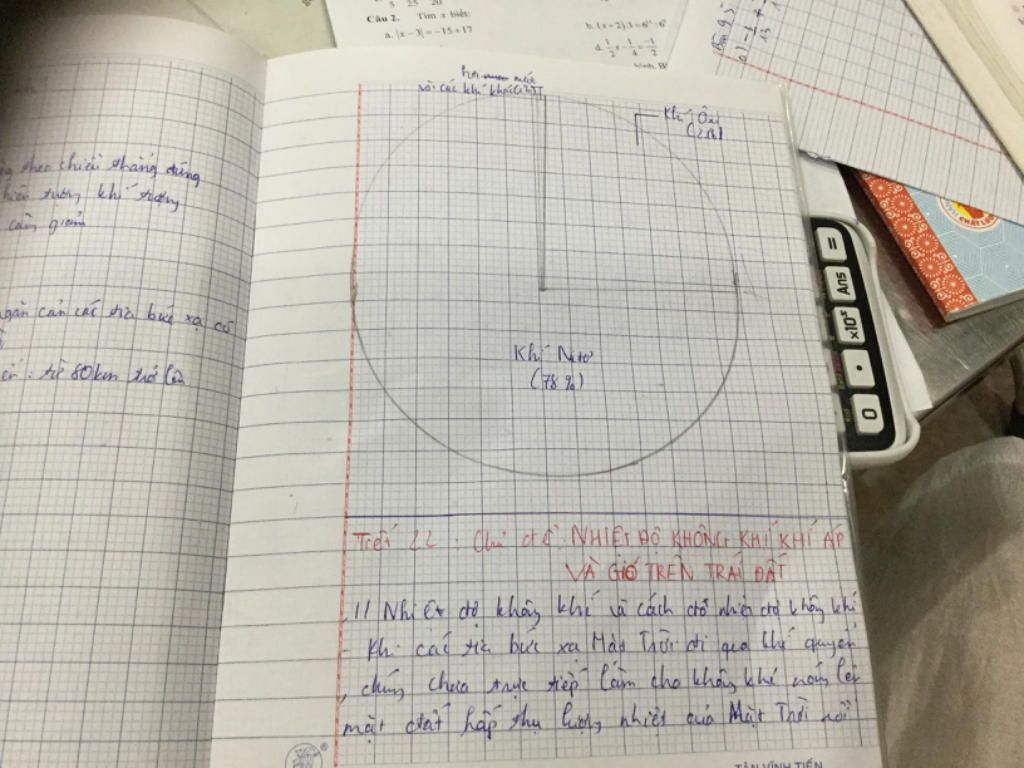 5 25 20
Câu 2. Tìm x biết:
a. |x − 3| = −15 + 17
b. (x + 2):3 = 6¹¹ : 6⁹
d. 1/2 x − 1/4 = −1/2
theo chiều thẳng đứng
hiện tượng khí tượng
càng giảm
ngăn cản các tia bức xạ có
: từ 80km trở lên
hơi nước
và các khí khác (1%)
Khí Ôxi
(21%)
Khí Nitơ
(78%)
Tiết 22: Chủ đề NHIỆT ĐỘ KHÔNG KHÍ KHÍ ÁP
VÀ GIÓ TRÊN TRÁI ĐẤT
1/ Nhiệt độ không khí và cách đo nhiệt độ không khí
- Khi các tia bức xạ Mặt Trời đi qua khí quyển
, chúng chưa trực tiếp làm cho không khí nóng lên
mặt đất hấp thụ lượng nhiệt của Mặt Trời rồi
=
Ans
×10ˣ
•
0
CHẤT LƯỢNG
TÂN VĨNH TIẾN